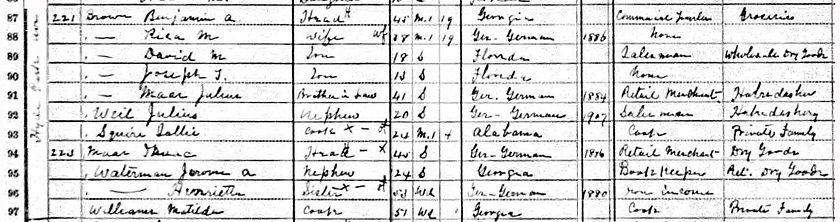 87 221 Brown Benjamin A Head 45 M.1 19 Georgia Commercial Traveler Groceries
88 — Rica M Wife 38 M.1 19 Ger. German 1886 none
89 — David M Son 18 S Florida Salesman Wholesale Dry Goods
90 — Joseph I. Son 13 S Florida none
91 — Maas Julius Brother in Law 41 S Ger. German 1884 Retail Merchant Haberdasher
92 Weil Julius Nephew 20 S Ger - German 1907 Salesman Haberdashery
93 Squire Sallie Cook X — 24 M.1 4 Alabama Cook Private Family
94 223 Maas Isaac Head — X 45 S Ger - German 1886 Retail Merchant Dry Goods
95 Waterman Jerome A Nephew 24 S Georgia Book Keeper Ret. Dry Goods
96 — Henrietta Sister X — 53 Wd Ger - German 1880 Own income
97 Williams Matilda Cook 51 Wd Georgia Cook Private Family